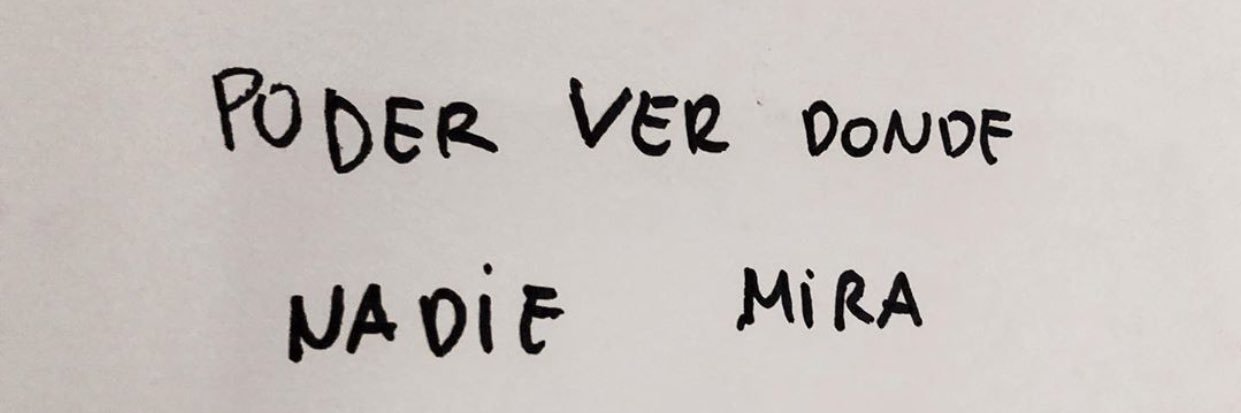 PODER VER DONDE
NADiE MiRA